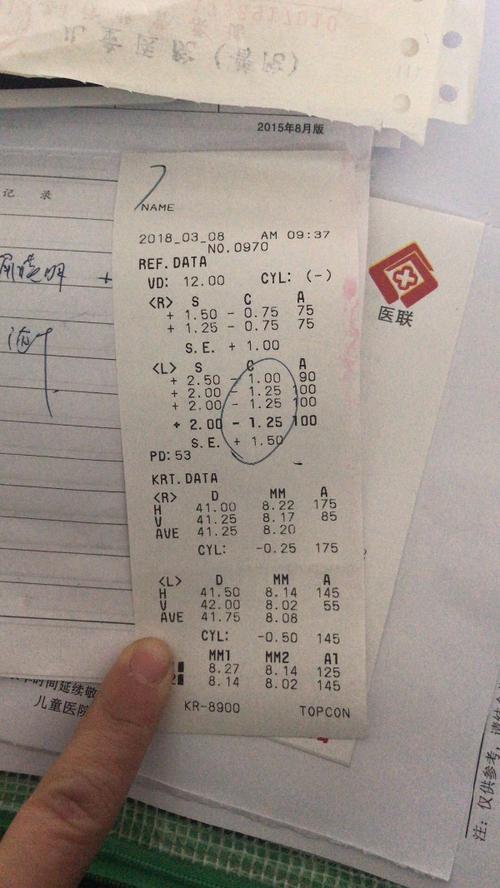 儿童医院(
2015年8月版
记 录
NAME
2018_03_08 AM 09:37
NO.0970
REF.DATA
VD: 12.00 CYL: (-)
<R> S C A
+ 1.50 - 0.75 75
+ 1.25 - 0.75 75
S.E. + 1.00
<L> S C A
+ 2.50 - 1.00 90
+ 2.00 - 1.25 100
+ 2.00 - 1.25 100
+ 2.00 - 1.25 100
S.E. + 1.50
PD: 53
KRT.DATA
<R> D MM A
H 41.00 8.22 175
V 41.25 8.17 85
AVE 41.25 8.20
CYL: -0.25 175
<L> D MM A
H 41.50 8.14 145
V 42.00 8.02 55
AVE 41.75 8.08
CYL: -0.50 145
MM1 MM2 A1
8.27 8.14 125
8.14 8.02 145
KR-8900 TOPCON
医联
时间延续敬
儿童医院
注：仅供参考，请结